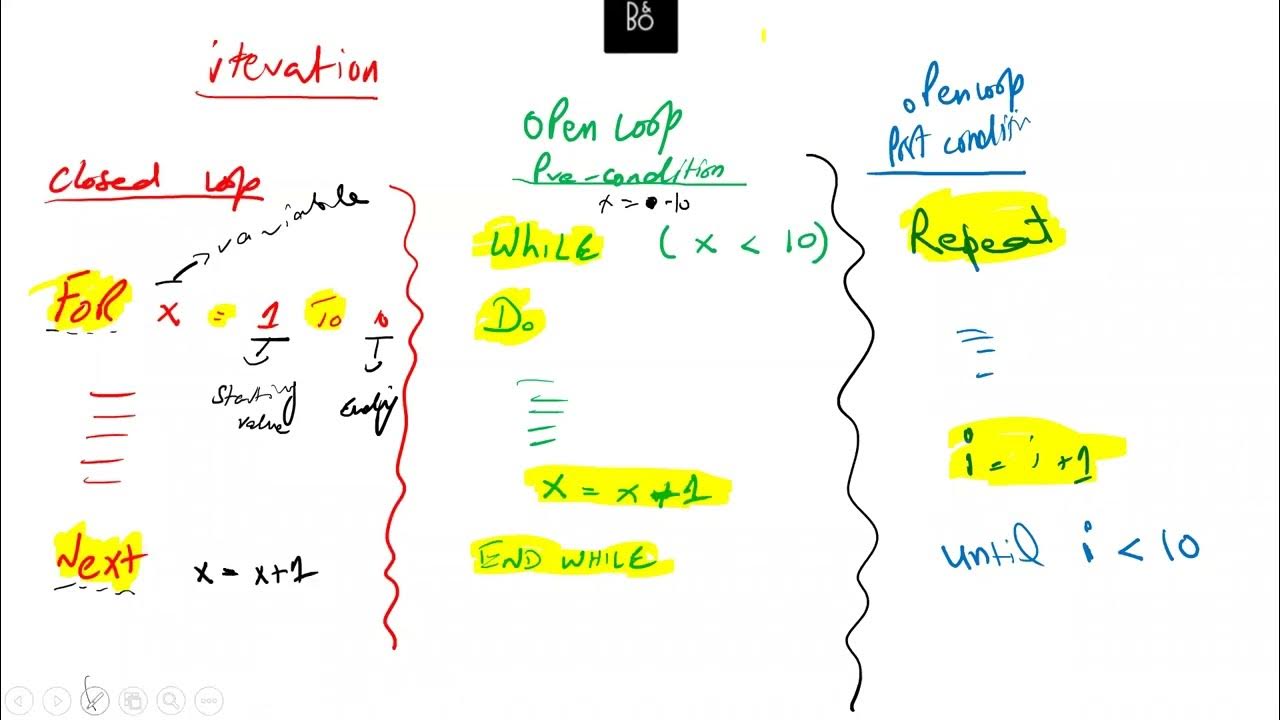 B&O
iteration
Closed Loop
variable
FOR x = 1 To
Starting
value
Ending
Next x = x+1
OPen Loop
Pre-condition
x = -10
WHILE (x < 10)
Do
x = x+1
END WHILE
oPen loop
Post condition
Repeat
i = i +1
until i < 10